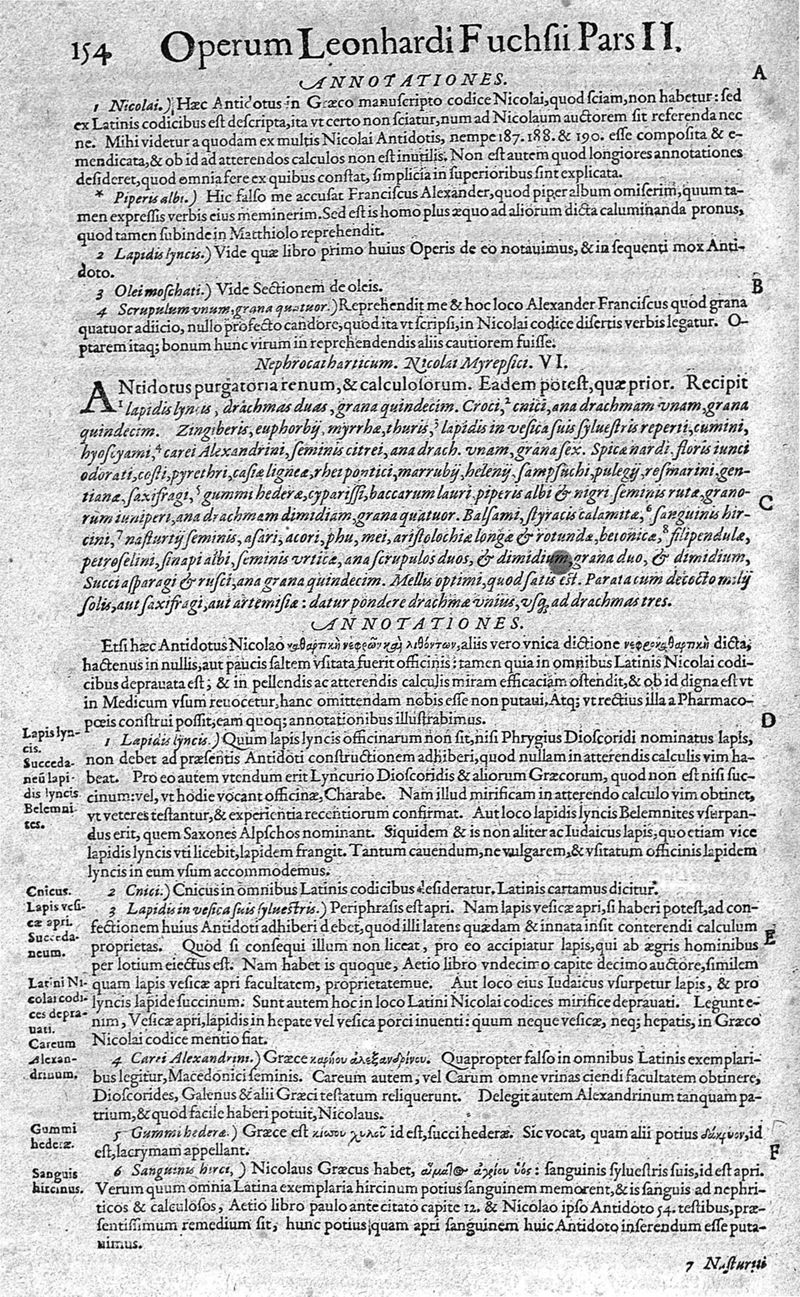 154 Operum Leonhardi Fuchsii Pars II.
ANNOTATIONES.
A
1 Nicolai.) Hæc Antidotus in Græco manuscripto codice Nicolai, quod sciam, non habetur: sed
ex Latinis codicibus est descripta, ita vt certo non sciatur, num ad Nicolaum auctorem sit referenda nec
ne. Mihi videtur a quodam ex multis Nicolai Antidotis, nempe 187. 188. & 190. esse composita & e-
mendicata, & ob id ad atterendos calculos non est inutilis. Non est autem quod longiores annotationes
desideret, quod omnia fere ex quibus constat, simplicia in superioribus sint explicata.
* Piperis albi.) Hic falso me accusat Franciscus Alexander, quod piper album omiserim, quum ta-
men expressis verbis eius meminerim. Sed est is homo plus æquo ad aliorum dicta calumnianda pronus,
quod tamen subinde in Matthiolo reprehendit.
2 Lapidis lyncis.) Vide quæ libro primo huius Operis de eo notauimus, & in sequenti mox Anti-
doto.
3 Olei moschati.) Vide Sectionem de oleis.
B
4 Scrupulum vnum, grana quatuor.) Reprehendit me & hoc loco Alexander Franciscus quod grana
quatuor adiicio, nullo profecto candore, quod ita vt scripsi, in Nicolai codice disertis verbis legatur. O-
ptarem itaq; bonum hunc virum in reprehendendis aliis cautiorem fuisse.
Nephrocatharticum. Nicolai Myrepsici. VI.
ANtidotus purgatoria renum, & calculosorum. Eadem potest, quæ prior. Recipit
1 lapidis lyncis, drachmas duas, grana quindecim. Croci, 2 cnici, ana drachmam vnam, grana
quindecim. Zingiberis, euphorbij, myrrhæ, thuris, 3 lapidis in vesica suis syluestris reperti, cumini,
hyoscyami, 4 carei Alexandrini, seminis citrei, ana drach. vnam, grana sex. Spicæ nardi, floris iunci
odorati, costi, pyrethri, casiæ ligneæ, rhei pontici, marrubij, helenij, sampsuchi, pulegij, rosmarini, gen-
tianæ, saxifragi, 5 gummi hederæ, cyparissi, baccarum lauri, piperis albi & nigri seminis rutæ, grano-
C
rum iuniperi, ana drachmam dimidiam, grana quatuor. Balsami, styracis calamitæ, 6 sanguinis hir-
cini, 7 nasturtij seminis, asari, acori, phu, mei, aristolochiæ longæ & rotundæ, betonicæ, 8 filipendulæ,
petroselini, sinapi albi, seminis vrticæ, ana scrupulos duos, & dimidium, grana duo, & dimidium,
Succi asparagi & rusci, ana grana quindecim. Mellis optimi, quod satis est. Parata cum decocto milij
solis, aut saxifragi, aut artemisiæ: datur pondere drachmæ vnius, vsq; ad drachmas tres.
ANNOTATIONES.
Etsi hæc Antidotus Nicolao καθαρτικὴ νεφρῶν καὶ λιθόντων, aliis vero vnica dictione νεφροκαθαρτικὴ dicta,
hactenus in nullis, aut paucis saltem vsitata fuerit officinis: tamen quia in omnibus Latinis Nicolai codi-
cibus deprauata est; & in pellendis ac atterendis calculis miram efficaciam ostendit, & ob id digna est vt
in Medicum vsum reuocetur, hanc omittendam nobis esse non putaui. Atq; vt rectius illa a Pharmaco-
pœis construi possit, eam quoq; annotationibus illustrabimus.
D
Lapis lyn-
cis.
Succeda-
neū lapi-
dis lyncis
Belemni-
tes.
1 Lapidis lyncis.) Quum lapis lyncis officinarum non sit, nisi Phrygius Dioscoridi nominatus lapis,
non debet ad præsentis Antidoti constructionem adhiberi, quod nullam in atterendis calculis vim ha-
beat. Pro eo autem vtendum erit Lyncurio Dioscoridis & aliorum Græcorum, quod non est nisi suc-
cinum: vel, vt hodie vocant officinæ, Charabe. Nam illud mirificam in atterendo calculo vim obtinet,
vt veteres testantur, & experientia recentiorum confirmat. Aut loco lapidis lyncis Belemnites vsurpan-
dus erit, quem Saxones Alpschos nominant. Siquidem & is non aliter ac Iudaicus lapis, quo etiam vice
lapidis lyncis vti licebit, lapidem frangit. Tantum cauendum, ne vulgarem, & vsitatum officinis lapidem
lyncis in eum vsum accommodemus.
Cnicus.
2 Cnici.) Cnicus in omnibus Latinis codicibus desideratur. Latinis cartamus dicitur.
Lapis vesi-
cæ apri.
Succeda-
neum.
3 Lapidis in vesica suis syluestris.) Periphrasis est apri. Nam lapis vesicæ apri, si haberi potest, ad con-
fectionem huius Antidoti adhiberi debet, quod illi latens quædam & innata insit conterendi calculum
E
proprietas. Quod si consequi illum non liceat, pro eo accipiatur lapis, qui ab ægris hominibus
per lotium eiectus est. Nam habet is quoque, Aetio libro vndecimo capite decimo auctore, similem
Latini Ni-
colai codi-
ces depra-
uati.
quam lapis vesicæ apri facultatem, proprietatemue. Aut loco eius Iudaicus vsurpetur lapis, & pro
lyncis lapide succinum. Sunt autem hoc in loco Latini Nicolai codices mirifice deprauati. Legunt e-
nim, Vesicæ apri, lapidis in hepate vel vesica porci inuenti: quum neque vesicæ, neq; hepatis, in Græco
Nicolai codice mentio fiat.
Careum
Alexan-
drinum.
4 Carei Alexandrini.) Græce καρήου ἀλεξανδρίνου. Quapropter falso in omnibus Latinis exemplari-
bus legitur, Macedonici seminis. Careum autem, vel Carum omne vrinas ciendi facultatem obtinere,
Dioscorides, Galenus & alii Græci testatum reliquerunt. Delegit autem Alexandrinum tanquam pa-
trium, & quod facile haberi potuit, Nicolaus.
Gummi
hederæ.
5 Gummi hederæ.) Græce est κισσου χυλοῦ id est, succi hederæ. Sic vocat, quam alii potius δάκρυον, id
est, lacrymam appellant.
F
Sanguis
hircinus.
6 Sanguinis hirci,) Nicolaus Græcus habet, αἵματος ἀγρίου ὑὸς: sanguinis syluestris suis, id est apri.
Verum quum omnia Latina exemplaria hircinum potius sanguinem memorent, & is sanguis ad nephri-
ticos & calculosos, Aetio libro paulo ante citato capite 12. & Nicolao ipso Antidoto 54. testibus, præ-
sentissimum remedium sit, hunc potius, quam apri sanguinem huic Antidoto inserendum esse puta-
uimus.
7 Nasturtii